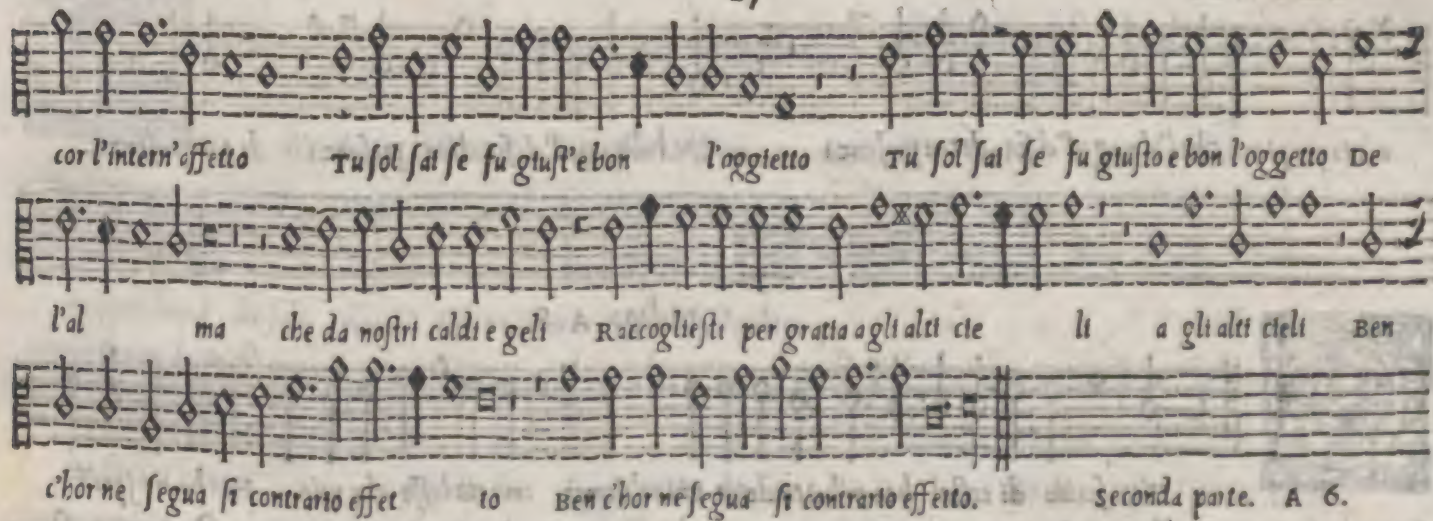 cor l'intern'offetto Tu ſol ſai ſe fu giuſt'e bon l'oggietto Tu ſol ſai ſe fu giuſto e bon l'oggetto De
l'al ma che da noſtri caldi e geli Raccoglieſti per gratia a gli alti cie li a gli alti cieli Ben
c'hor ne ſegua ſi contrario effet to Ben c'hor ne ſegua ſi contrario effetto. Seconda parte. A 6.